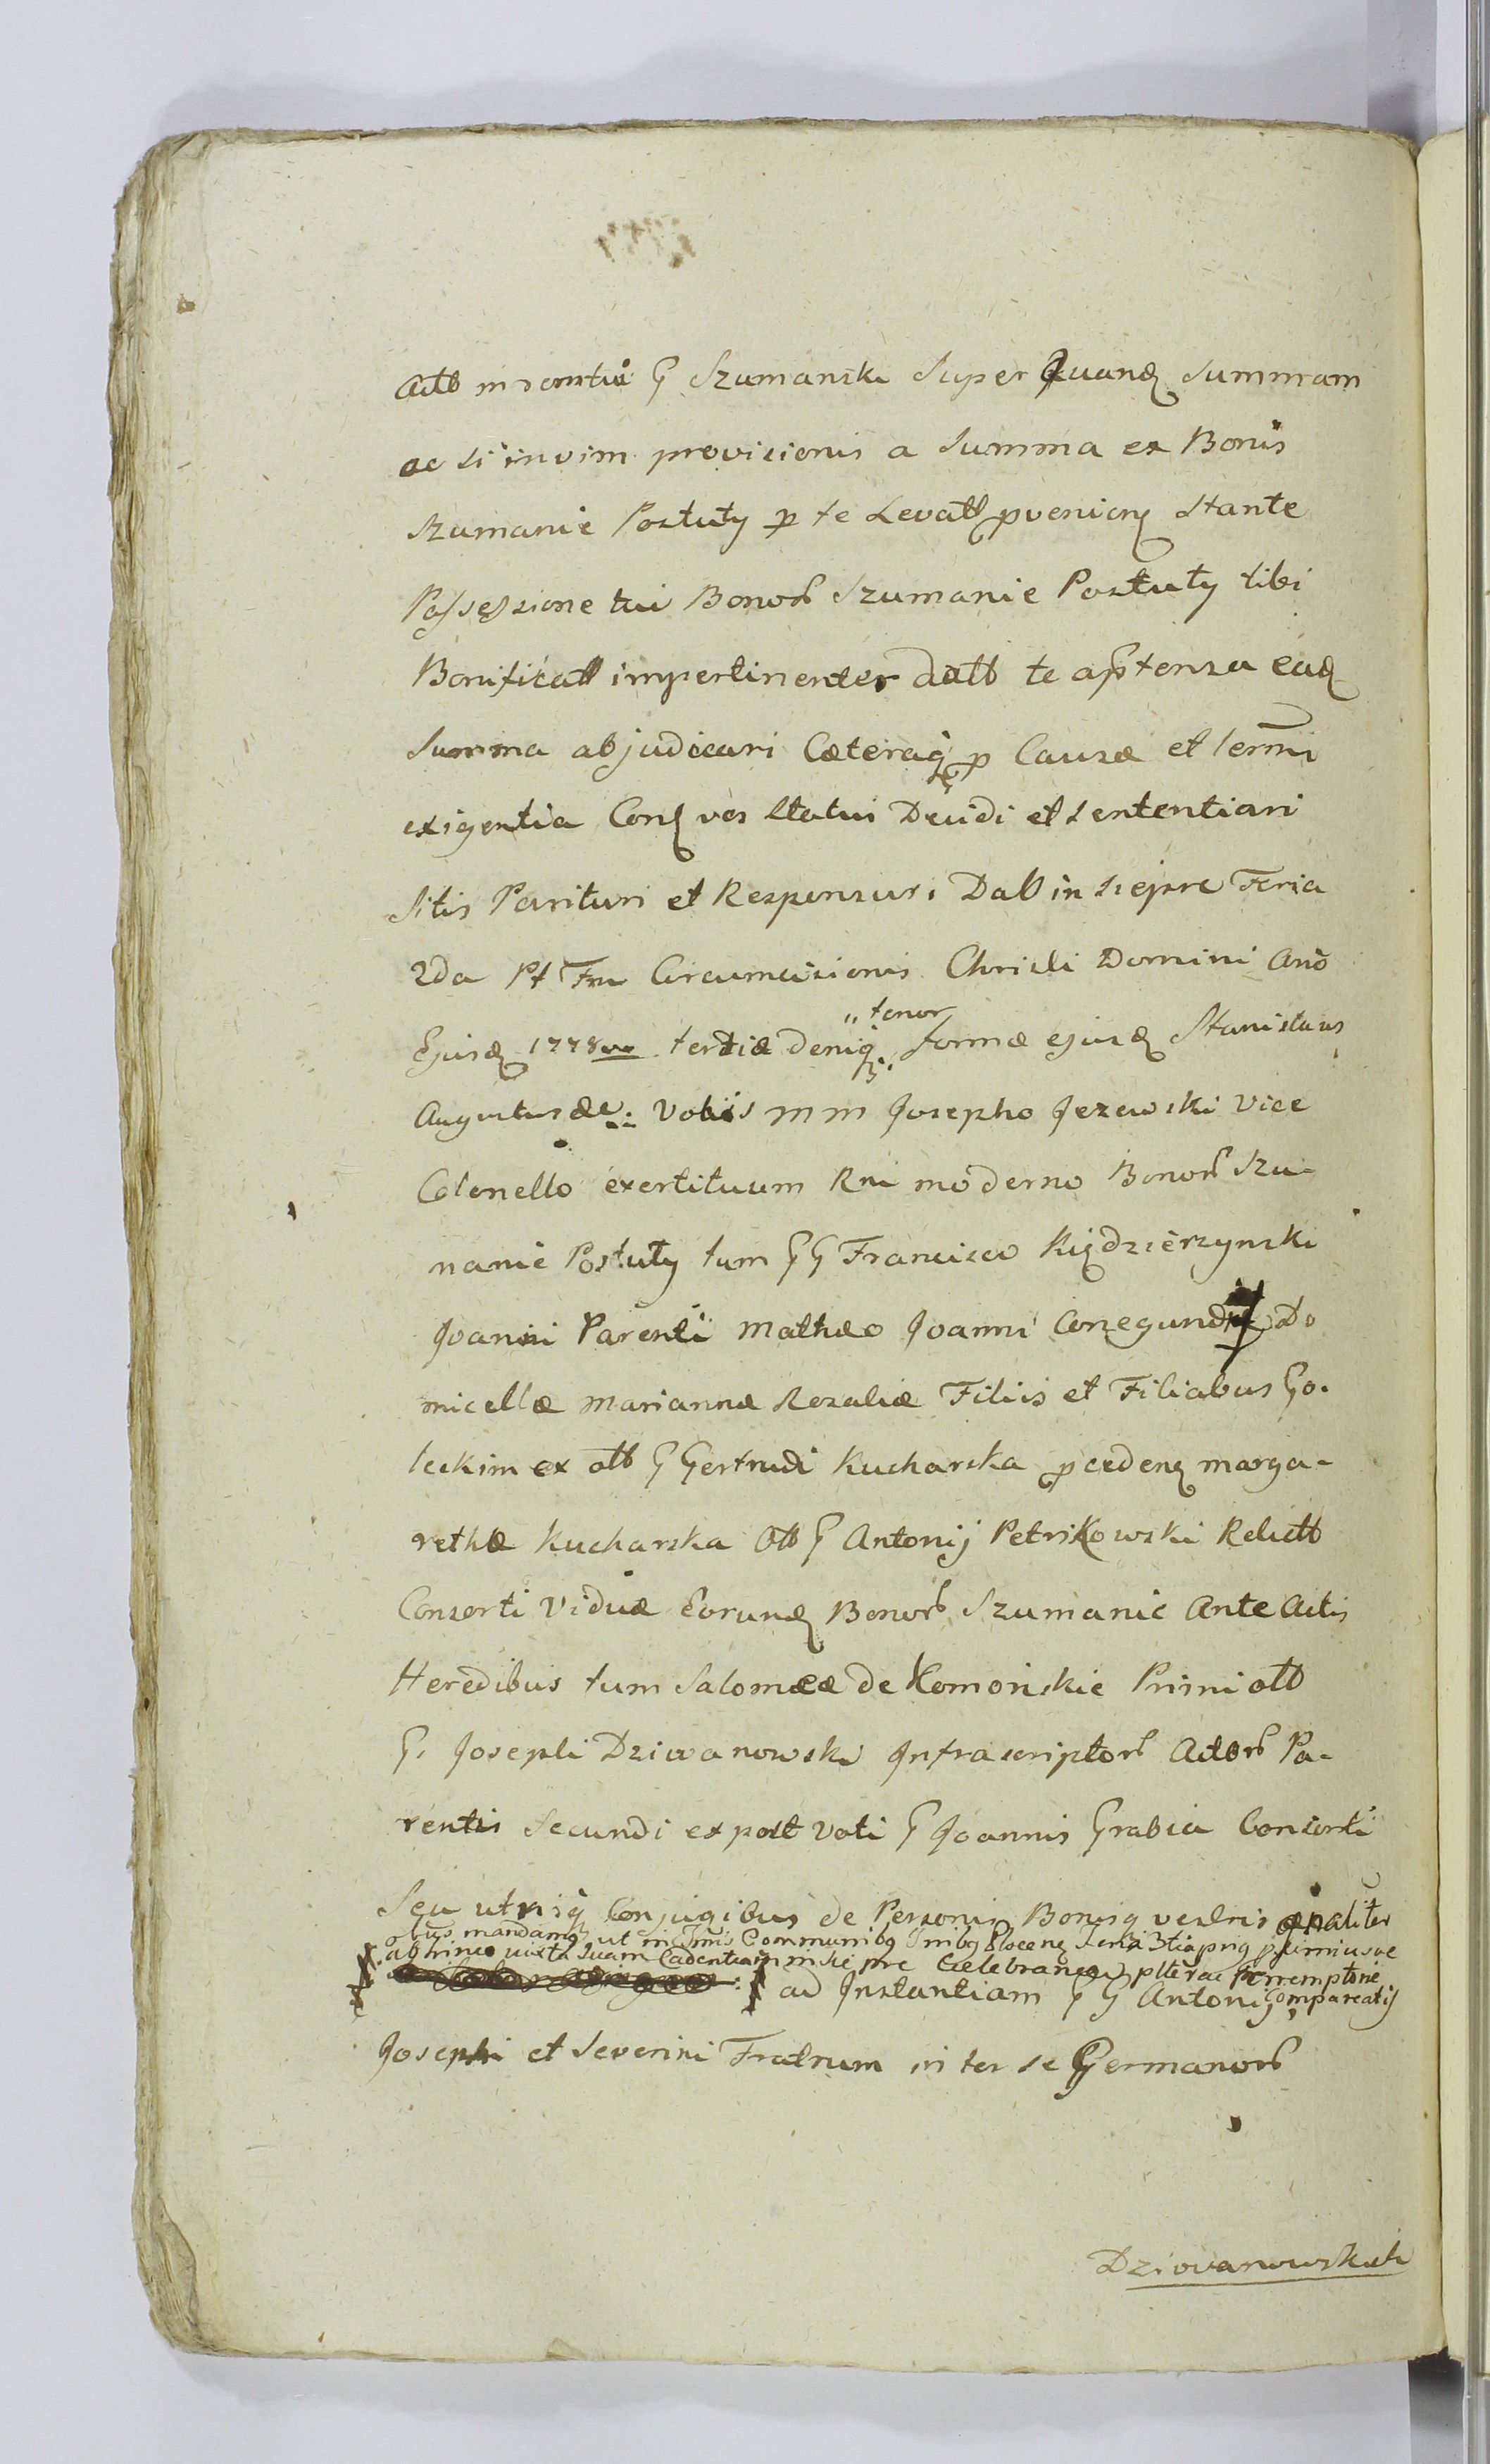 G Szumanski Super Quand Summam
ac si in vim provisionis a Summa ex Bonis
Szumanie Postuty p te Levatt pvenien Stante
Possessione tui Bonor Szumanie Postuty tibi
Bonificatt impertinenter datt te a ptensa ead
Summa abjudicari Cæteraq p Causæ et Termi
exigentia Con vos Statui Decidi et sententiari
Sitis Parituri et Responsuri Datt in Siepre Feria
2da Pt Fm Circumcisionis Christi Domini Ano
tenor
Ejusd 1778vo tertiæ deniq formæ ejusd Stanislaus
Augustus &c: Vobis M M Josepho Jezewski Vice
Colonello exertituum Rni moderno Bonor Szu-
manie Postuty tum G G Francisco Kiędzierzynski
Joanni Parenti Mathæo Joanni Conegundi Do
micellæ Mariannæ Rozaliæ Filiis et Filiabus Go-
leckim ex ott G Gertrudi Kucharska pceden Marga-
rethæ Kucharska Ott G Antonij Petrikowski Relictt
Consorti Viduæ Eorund Bonor Szumanie Ante Actis
Heredibus tum Salomeæ de Komorskie Primi ott
G. Josephi Dziwanowski Infrascriptor Actor Pa-
rentis Secundi ex post Voti G Joannis Grabia Consorti
Seu utrisq Conjugibus de Personis Bonisq vestris qnaliter
obus mandamq ut in Jmis Communibq
abhinc juxta suam Cadentiam in Siepre Celebrand pltr ac Perremptorie
ad Instantiam G G Antonij, Compareatis
Josephi et Severini Fratrum inter se Germanor
Dziwanowskich